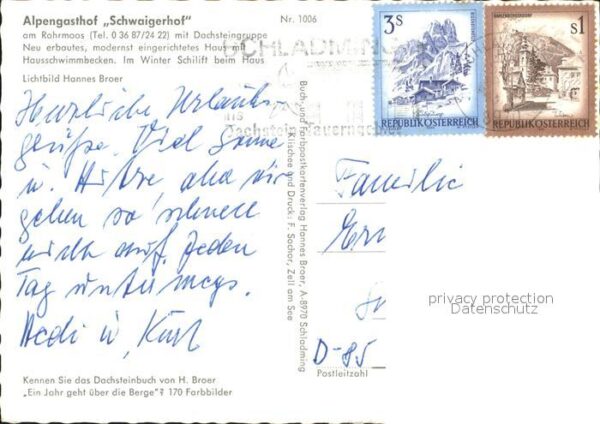 Alpengasthof „Schwaigerhof"
am Rohrmoos (Tel. 0 36 87/24 22) mit Dachsteingruppe
Neu erbautes, modernst eingerichtetes Haus mit
Hausschwimmbecken. Im Winter Schilift beim Haus
Lichtbild Hannes Broer
Nr. 1006
Herzliche Urlaubs-
grüße. Viel Sonne
u. Hitze aber wir
geben so schnell
nicht auf. Jeden
Tag unterwegs.
Hedi u. Kurt
Kennen Sie das Dachsteinbuch von H. Broer
„Ein Jahr geht über die Berge"? 170 Farbbilder
Buch- und Farbpostkartenverlag Hannes Broer, A-8970 Schladming
Klischee und Druck: F. Sochor, Zell am See
SCHLADMING
Dachstein-Tauerngebiet
3S
REPUBLIK ÖSTERREICH
S1
REPUBLIK ÖSTERREICH
Familie
D-85
Postleitzahl
privacy protection
Datenschutz